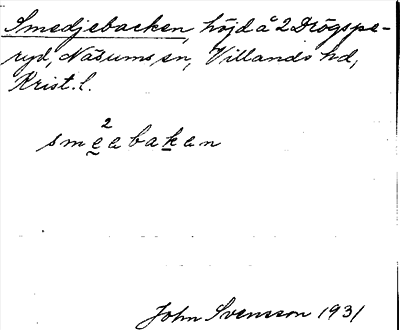 Smedjebacken, höjd å 2 Drögspe-
ryd, Näsums sn, Villands hd,
Krist. l.
2
smeebakan
John Svensson 1931